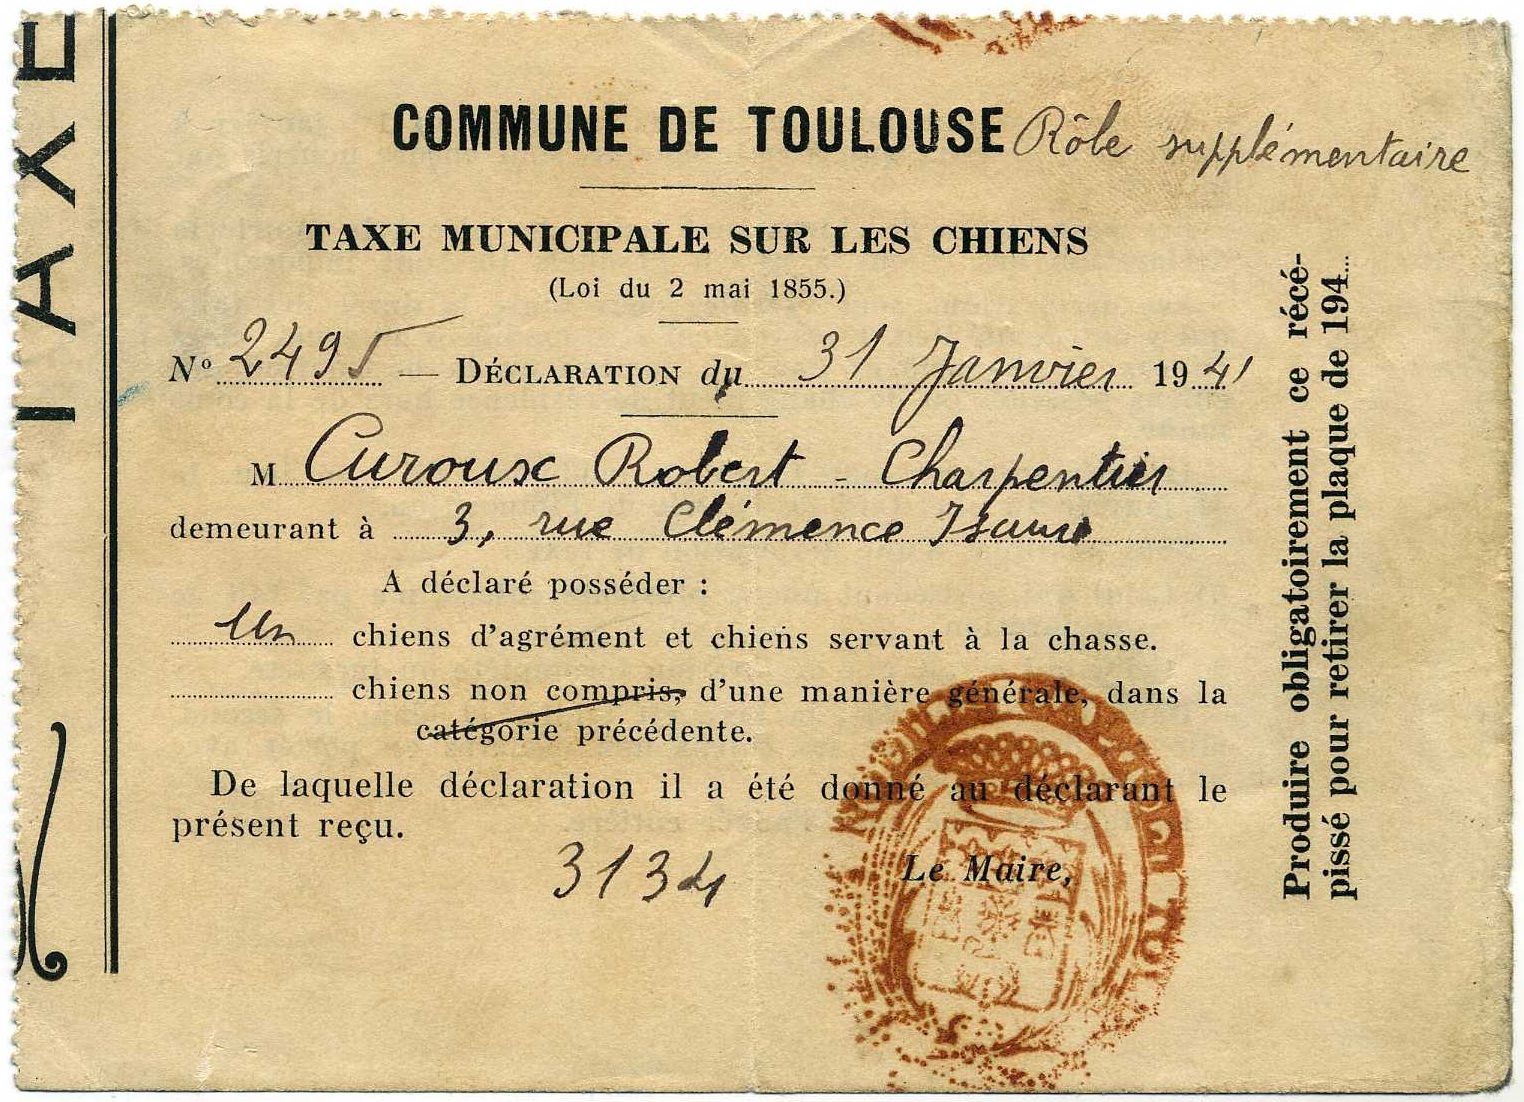 TAXE
COMMUNE DE TOULOUSE Rôle supplémentaire
TAXE MUNICIPALE SUR LES CHIENS
(Loi du 2 mai 1855.)
No 2495 — DÉCLARATION du 31 Janvier 1941
M Curoux Robert - Charpentier
demeurant à 3, rue Clémence Isaure
A déclaré posséder :
Un chiens d'agrément et chiens servant à la chasse.
chiens non compris, d'une manière générale, dans la
catégorie précédente.
De laquelle déclaration il a été donné au déclarant le
présent reçu.
3134
Le Maire,
Produire obligatoirement ce récé-
pissé pour retirer la plaque de 194